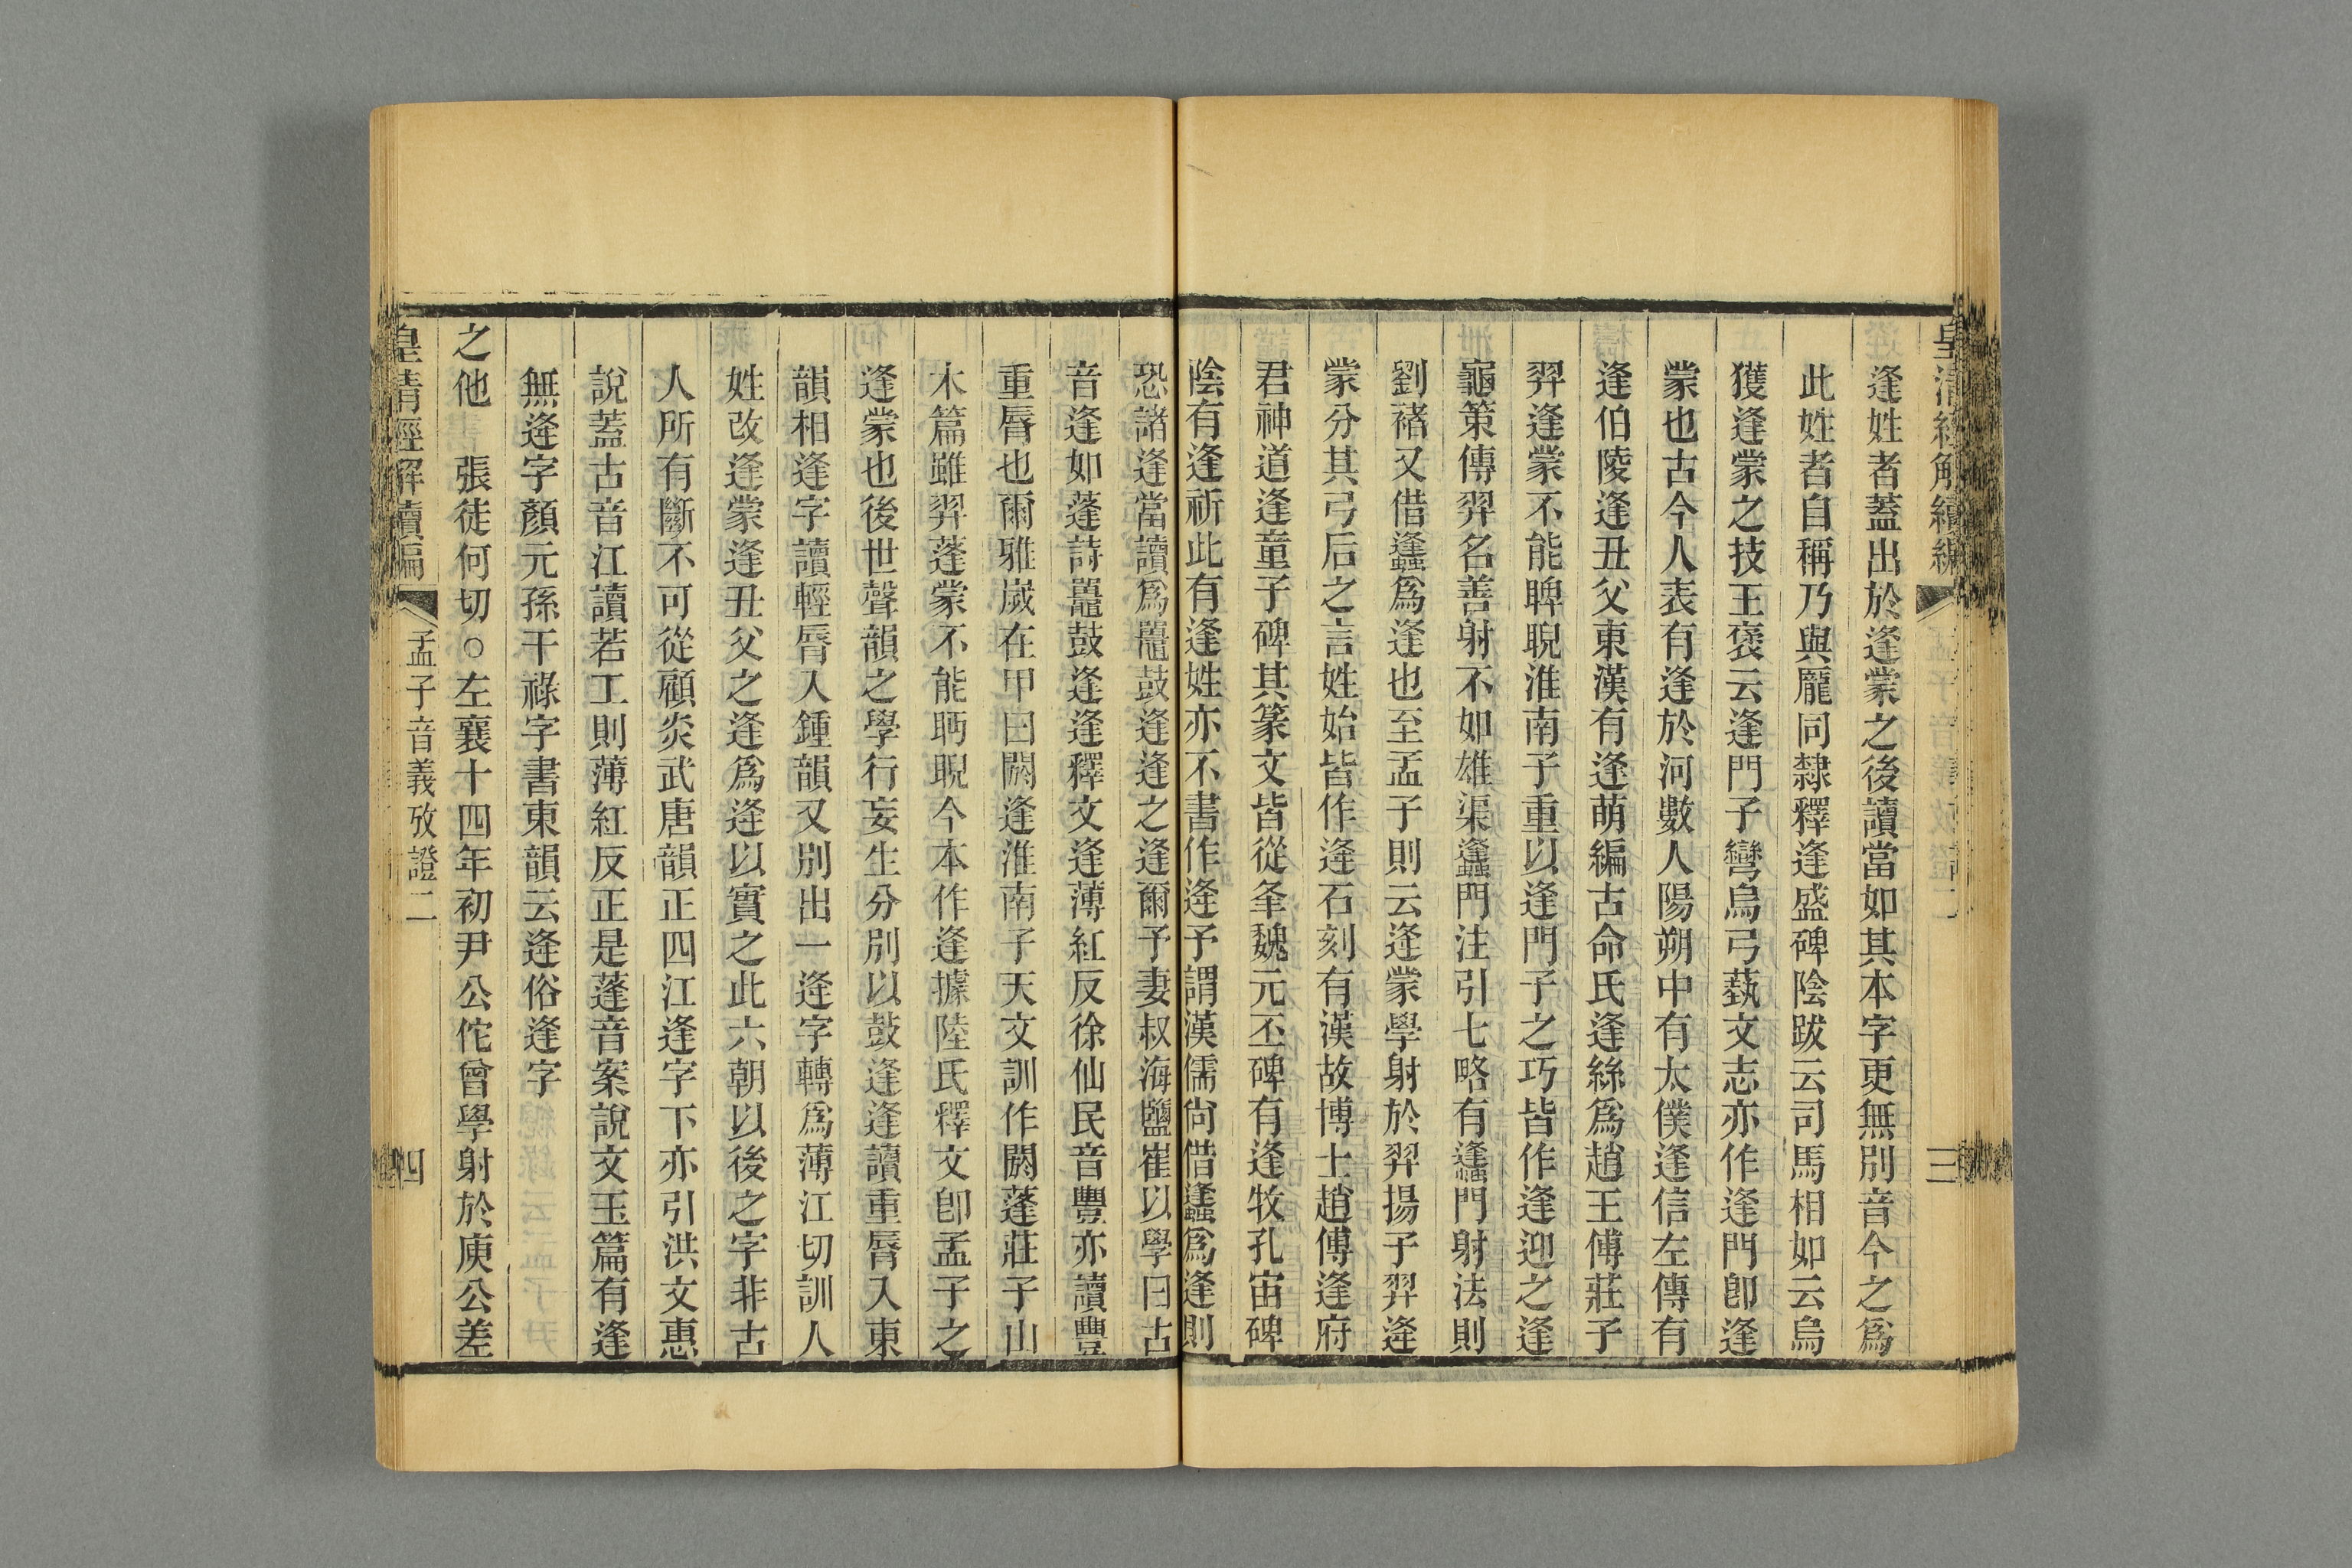 皇清經解續編
三
逄姓者蓋出於逄蒙之後讀當如其本字更無別音今之爲
此姓者自稱乃與龐同隸釋逄盛碑陰跋云司馬相如云烏
獲逄蒙之技王褒云逄門子彎烏弓蓺文志亦作逄門卽逄
蒙也古今人表有逄於河數人陽朔中有太僕逄信左傳有
逄伯陵逄丑父東漢有逄萌編古命氏逄絲爲趙王傅莊子
羿逄蒙不能睥睨淮南子重以逄門子之巧皆作逄迎之逄
龜策傳羿名善射不如雄渠蠭門注引七略有蠭門射法則
劉褚又借蠭爲逄也至孟子則云逄蒙學射於羿揚子羿逄
蒙分其弓后之言姓始皆作逄石刻有漢故博士趙傅逄府
君神道逄童子碑其篆文皆從夆魏元丕碑有逄牧孔宙碑
陰有逄祈此有逄姓亦不書作逄予謂漢儒尙借蠭爲逄則
恐諸逄當讀爲鼉鼓逄逄之逄爾予妻叔海鹽崔以學曰古
音逄如蓬詩鼉鼓逄逄釋文逄薄紅反徐仙民音豐亦讀豐
重脣也爾雅嵗在甲曰閼逄淮南子天文訓作閼蓬莊子山
木篇雖羿蓬蒙不能眄睨今本作逄據陸氏釋文卽孟子之
逄蒙也後世聲韻之學行妄生分別以鼓逄逄讀重脣入東
韻相逄字讀輕脣入鍾韻又別出一逄字轉爲薄江切訓人
姓改逄蒙逄丑父之逄爲逄以實之此六朝以後之字非古
人所有斷不可從顧炎武唐韻正四江逄字下亦引洪文惠
說蓋古音江讀若工則薄紅反正是蓬音案說文玉篇有逢
無逄字顏元孫干祿字書東韻云逄俗逢字
之他　張徒何切○左襄十四年初尹公佗曾學射於庾公差
皇清經解續編
孟子音義攷證二
四